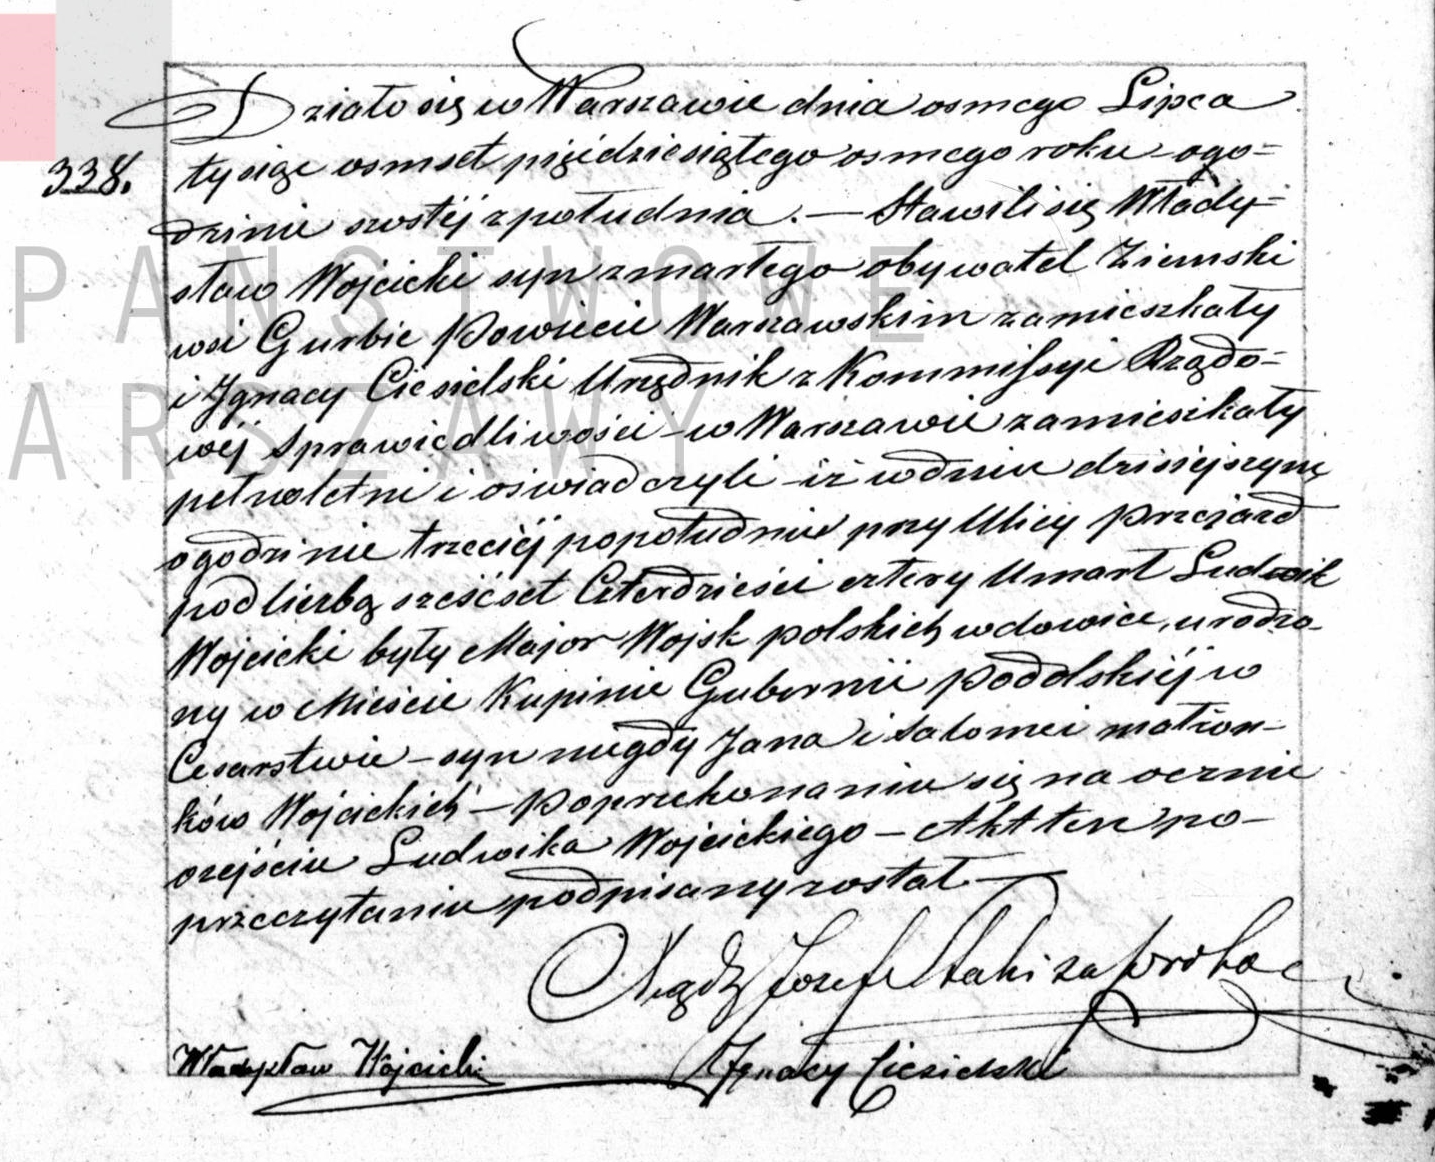 Działo się w Warszawie dnia osmego Lipca
338.
tysiąc osmset pięćdziesiątego osmego roku o go=
dzinie szóstéj z południa. — Stawili się Włady=
sław Wojcicki syn zmarłego obywatel Ziemski
wsi Gurbie Powiecie Warszawskim zamieszkały
i Jgnacy Ciesielski Urzędnik z Kommissyi Rządo=
wéj Sprawiedliwości w Warszawie zamieszkały
pełnoletni i oświadczyli iż w dniu dzisiejszym
o godzinie trzeciéj popołudniu przy Ulicy Przejazd
pod liczbą sześćset Czterdzieści cztery Umarł Ludwik
Wojcicki były Major Wojsk polskich wdowiec, urodzo-
ny w Mieście Kupinie Gubernii Podolskiéj w
Cesarstwie – syn niegdy Jana i Salomei małżon-
ków Wojcickich – Po przekonaniu się na ocznie
o zejściu Ludwika Wojcickiego – Akt ten po-
przeczytaniu podpisany został —
Xiądz Jozef
Władysław Wójcicki Ignacy Ciesielski
PAŃSTWOWE
ARSZAWY